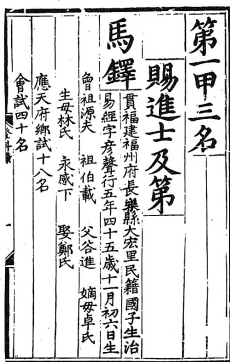 第一甲三名
賜進士及第
馬鐸
貫福建福州府長樂縣大宏里民籍國子生治
易經字彥聲行五年四十五歲十一月初六日生
曾祖源夫 祖伯載 父谷進 嫡母卓氏
生母林氏 永感下 娶鄭氏
應天府鄉試十八名
會試四十名